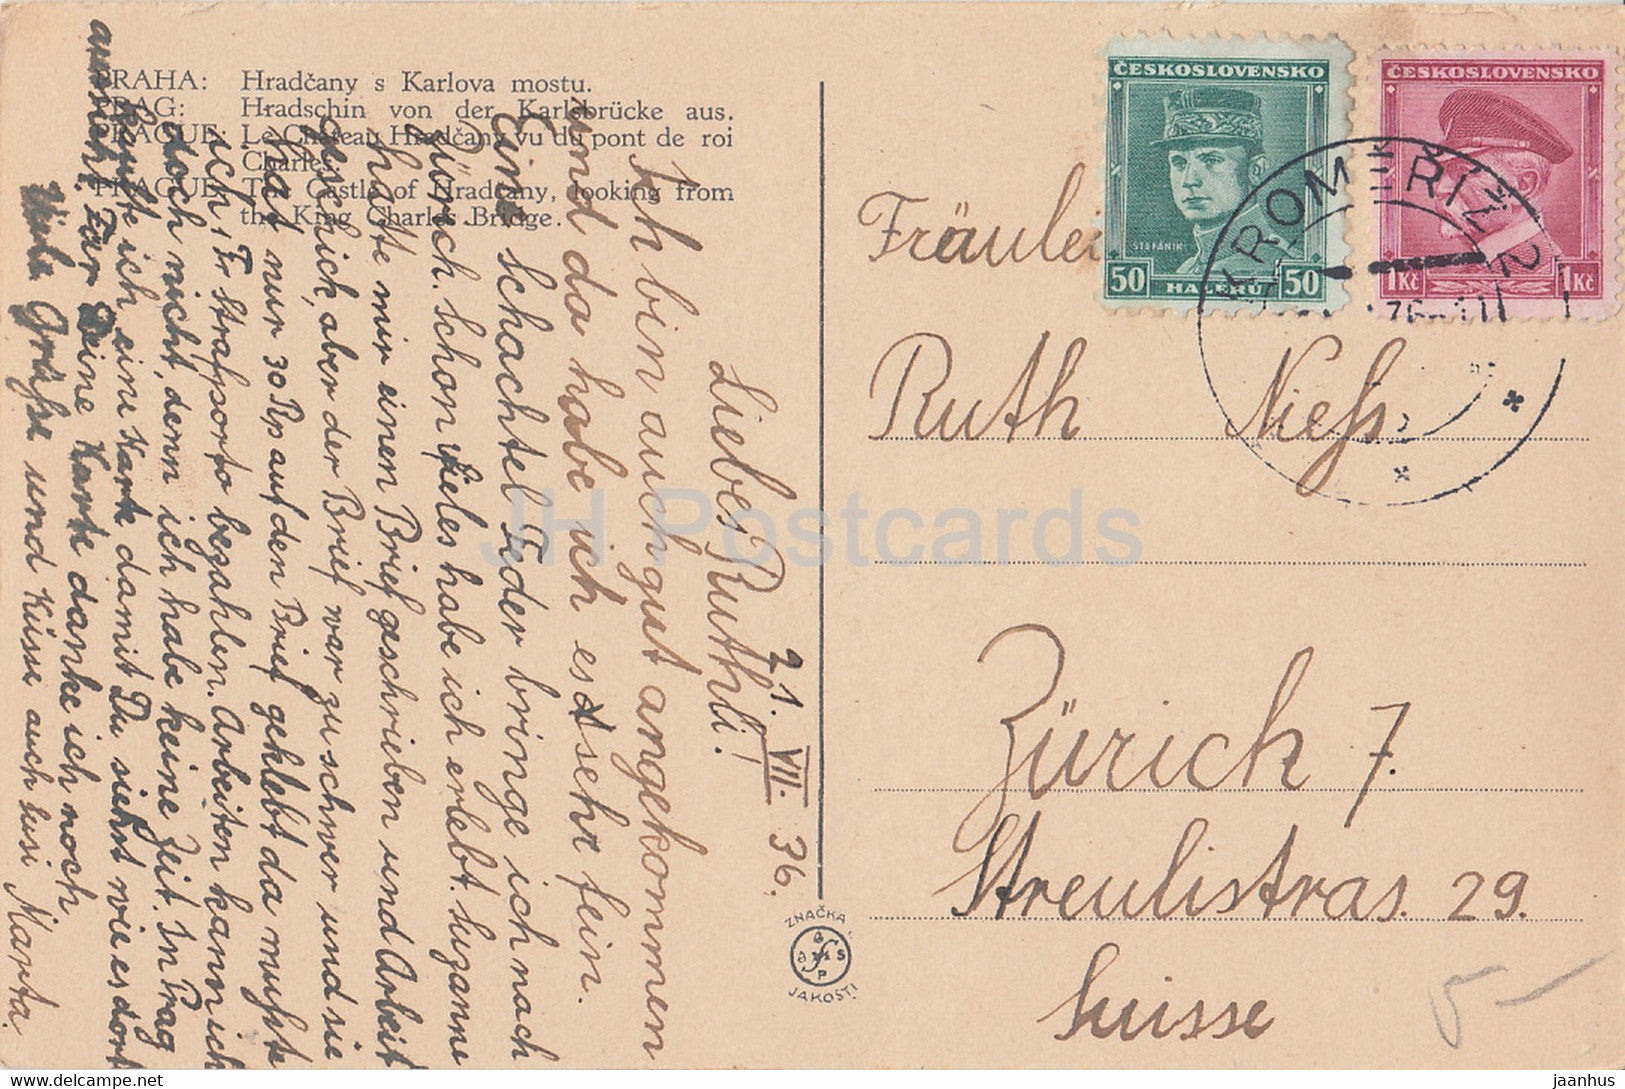 PRAHA: Hradčany s Karlova mostu.
PRAG: Hradschin von der Karlsbrücke aus.
PRAGUE: Le Château Hradčany vu du pont de roi
Charles.
PRAGUE: The Castle of Hradčany, looking from
the King Charles Bridge.
21. VII. 36.
Liebes Ruthli!
Ich bin auch gut angekommen
und da habe ich es sehr fein.
Eine Schachtel Feder bringe ich nach
Zürich. Schon vieles habe ich erlebt. Suzanne
hatte mir einen Brief geschrieben und Arbeit
für mich, aber der Brief war zu schwer und sie
hat nur 30 Rp auf den Brief geklebt da musste
ich 1 Fr Strafporto bezahlen. Arbeiten kann ich
doch nicht, denn ich habe keine Zeit. In Prag
kaufte ich eine Karte damit Du siehst wie es dort
aussieht. Für Deine Karte danke ich noch
Viele Grüsse und Küsse auch Susi Marta.
ČESKOSLOVENSKO
ŠTEFÁNIK
50 HALÉŘŮ 50
ČESKOSLOVENSKO
1Kč 1Kč
KROMĚŘÍŽ 2
Fräulei
Ruth Niess
Zürich 7.
Streulistras. 29.
Suisse
ZNAČKA
JAKOSTI
5-
JH Postcards
jaanhus @ www.delcampe.net